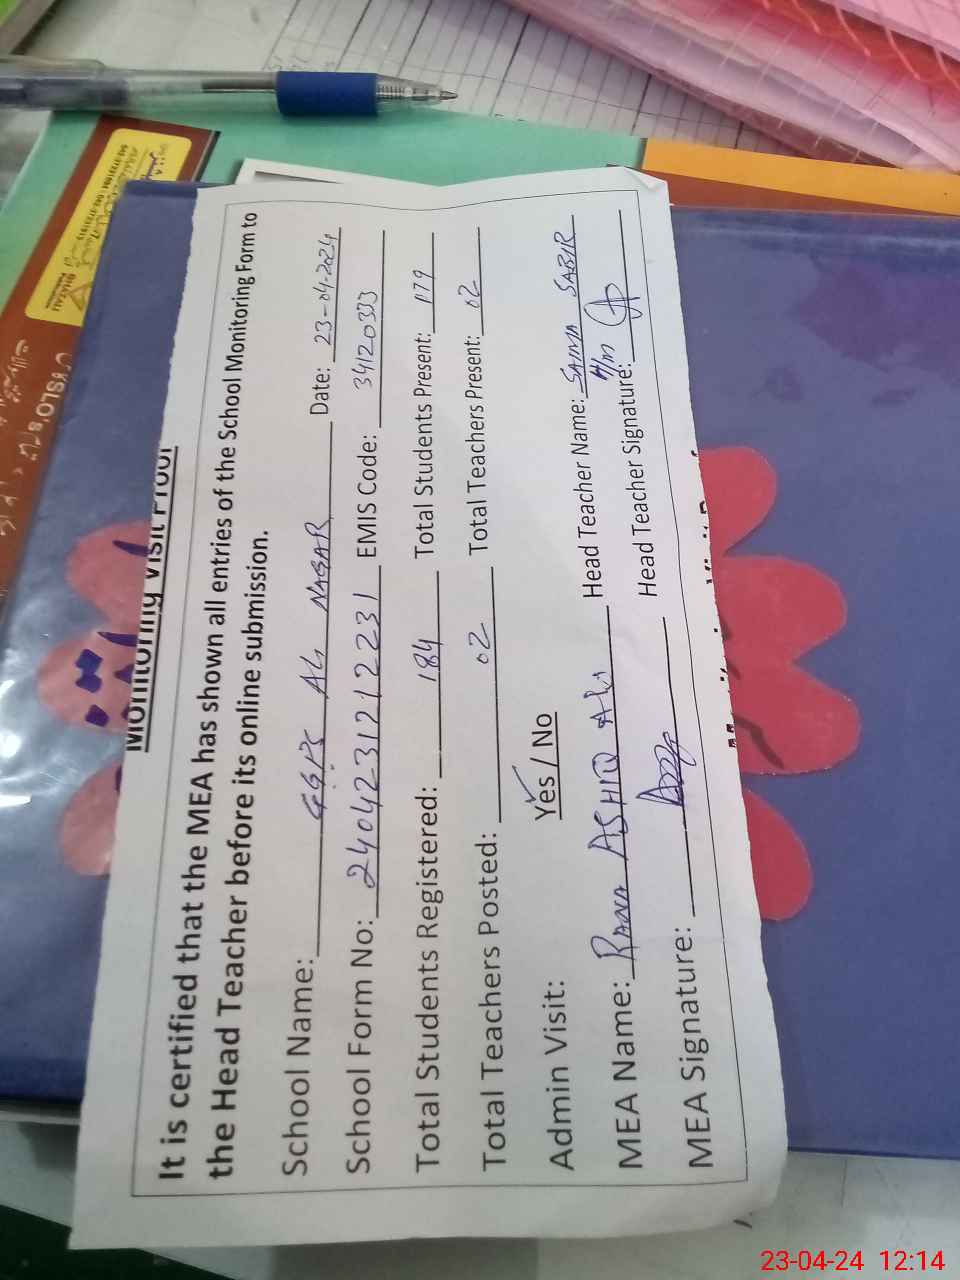 Monitoring Visit Proof
It is certified that the MEA has shown all entries of the School Monitoring Form to
the Head Teacher before its online submission.
School Name: GGPS Ali NAGAR Date: 23-04-2024
School Form No: 2404231211231 EMIS Code: 34120333
Total Students Registered: 184 Total Students Present: 179
Total Teachers Posted: 02 Total Teachers Present: 02
Admin Visit: Yes / No
MEA Name: RANA ASHIQ Ali Head Teacher Name: SAIMA SABIR
MEA Signature: Head Teacher Signature:
H/m
GHAZALI
23-04-24 12:14